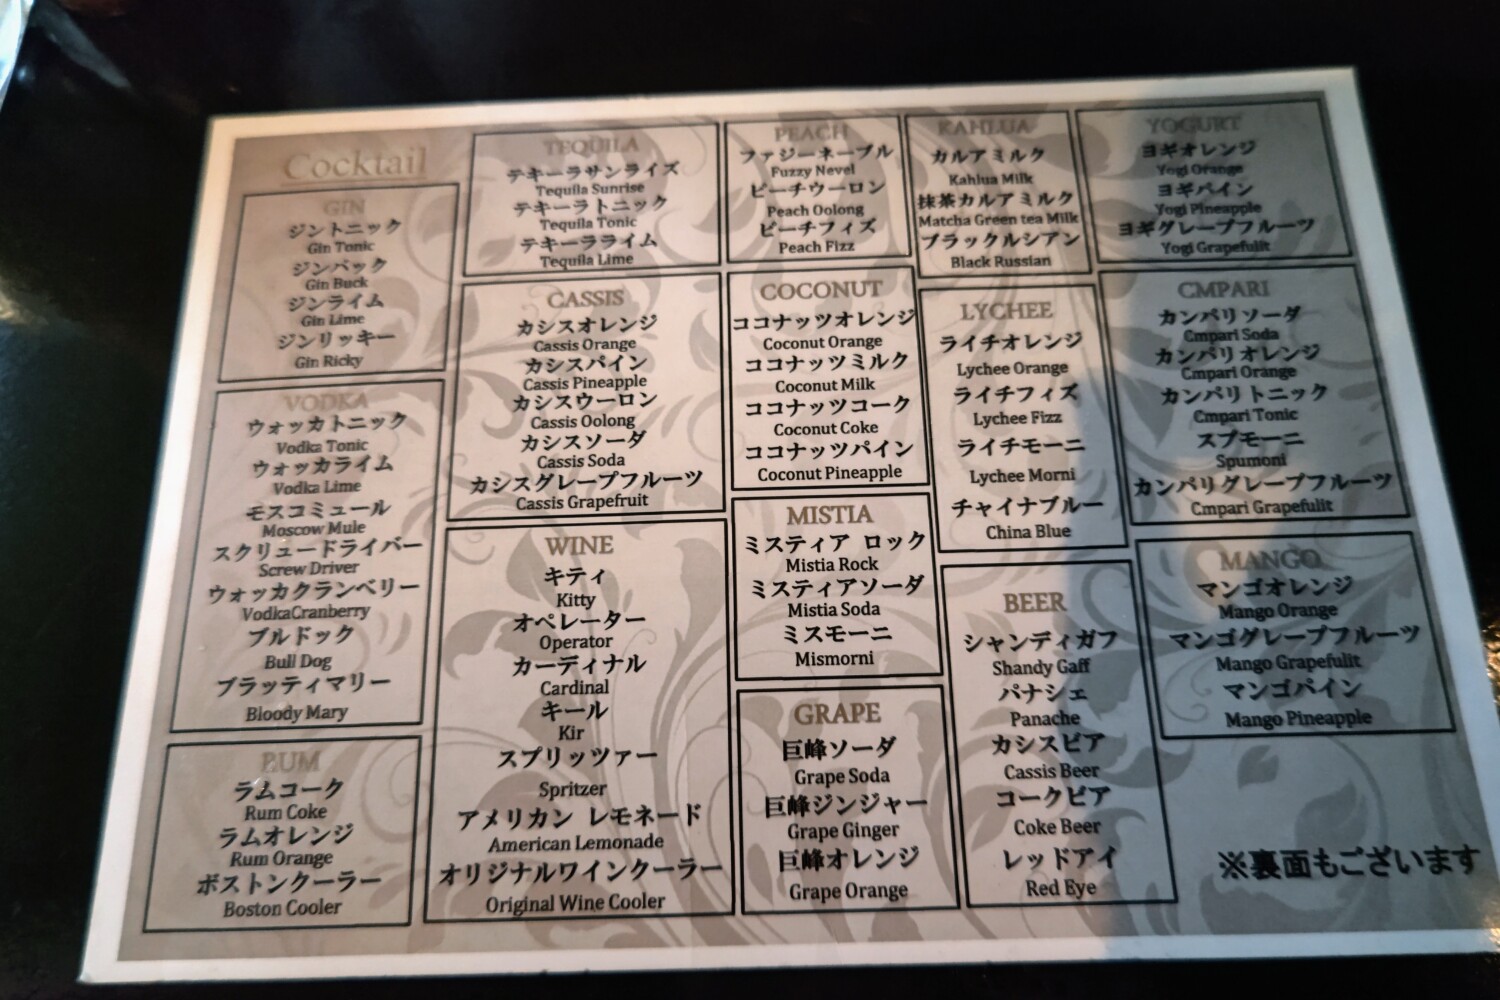 Cocktail
GIN
ジントニック
Gin Tonic
ジンバック
Gin Buck
ジンライム
Gin Lime
ジンリッキー
Gin Ricky
VODKA
ウォッカトニック
Vodka Tonic
ウォッカライム
Vodka Lime
モスコミュール
Moscow Mule
スクリュードライバー
Screw Driver
ウォッカクランベリー
VodkaCranberry
ブルドック
Bull Dog
ブラッティマリー
Bloody Mary
RUM
ラムコーク
Rum Coke
ラムオレンジ
Rum Orange
ボストンクーラー
Boston Cooler
TEQUILA
テキーラサンライズ
Tequila Sunrise
テキーラトニック
Tequila Tonic
テキーラライム
Tequila Lime
CASSIS
カシスオレンジ
Cassis Orange
カシスパイン
Cassis Pineapple
カシスウーロン
Cassis Oolong
カシスソーダ
Cassis Soda
カシスグレープフルーツ
Cassis Grapefruit
WINE
キティ
Kitty
オペレーター
Operator
カーディナル
Cardinal
キール
Kir
スプリッツァー
Spritzer
アメリカン レモネード
American Lemonade
オリジナルワインクーラー
Original Wine Cooler
PEACH
ファジーネーブル
Fuzzy Nevel
ピーチウーロン
Peach Oolong
ピーチフィズ
Peach Fizz
COCONUT
ココナッツオレンジ
Coconut Orange
ココナッツミルク
Coconut Milk
ココナッツコーク
Coconut Coke
ココナッツパイン
Coconut Pineapple
MISTIA
ミスティア ロック
Mistia Rock
ミスティアソーダ
Mistia Soda
ミスモーニ
Mismorni
GRAPE
巨峰ソーダ
Grape Soda
巨峰ジンジャー
Grape Ginger
巨峰オレンジ
Grape Orange
KAHLUA
カルアミルク
Kahlua Milk
抹茶カルアミルク
Matcha Green tea Milk
ブラックルシアン
Black Russian
LYCHEE
ライチオレンジ
Lychee Orange
ライチフィズ
Lychee Fizz
ライチモーニ
Lychee Morni
チャイナブルー
China Blue
BEER
シャンディガフ
Shandy Gaff
パナシェ
Panache
カシスビア
Cassis Beer
コークビア
Coke Beer
レッドアイ
Red Eye
YOGURT
ヨギオレンジ
Yogi Orange
ヨギパイン
Yogi Pineapple
ヨギグレープフルーツ
Yogi Grapefulit
CMPARI
カンパリソーダ
Cmpari Soda
カンパリオレンジ
Cmpari Orange
カンパリトニック
Cmpari Tonic
スプモーニ
Spumoni
カンパリグレープフルーツ
Cmpari Grapefulit
MANGO
マンゴオレンジ
Mango Orange
マンゴグレープフルーツ
Mango Grapefulit
マンゴパイン
Mango Pineapple
※裏面もございます